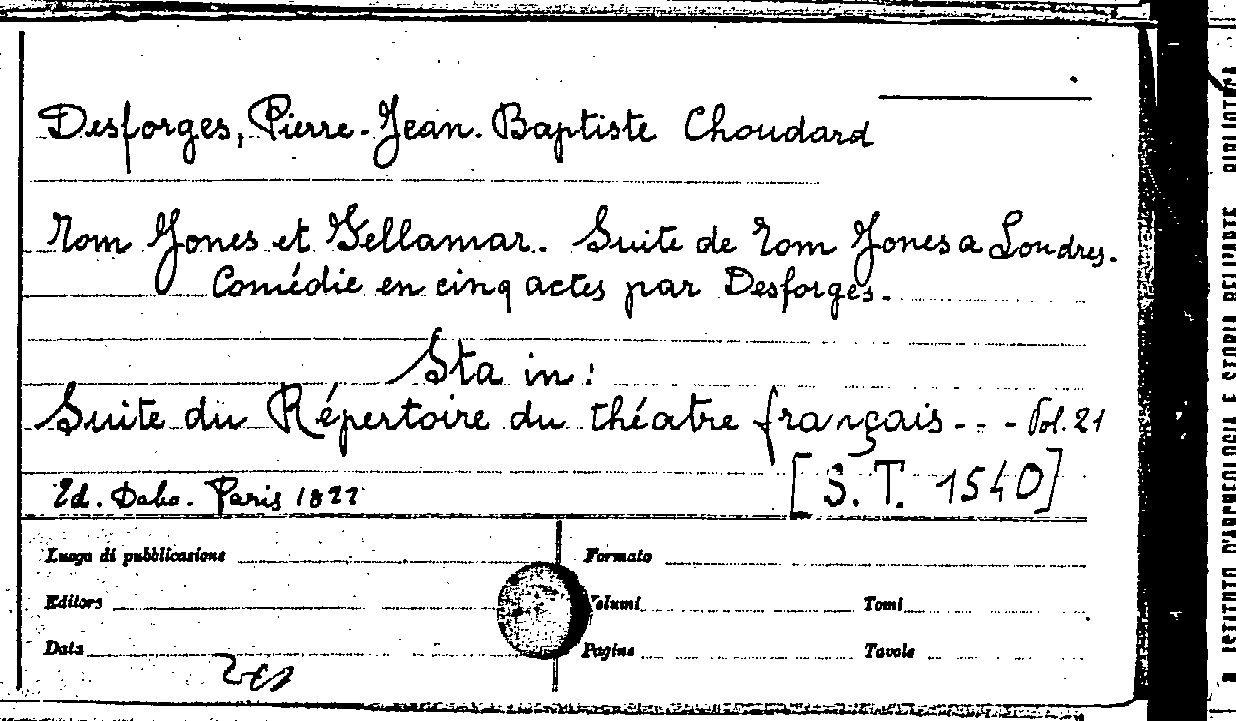 Desforges, Pierre-Jean-Baptiste Choudard
Tom Jones et Fellamar. Suite de Tom Jones a Londres.
Comédie en cinq actes par Desforges.
Sta in:
Suite du Répertoire du théatre français - - - Vol. 21
Ed. Dabo. Paris 1822
[S. T. 1540]
Luogo di pubblicazione
Formato
Editore
Volumi
Tomi
Data
Pagine
Tavole